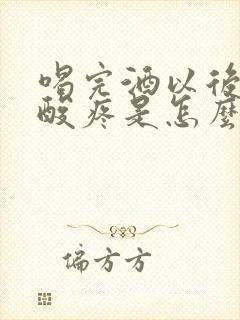 喝完酒以後
酸疼是怎麼
偏方方